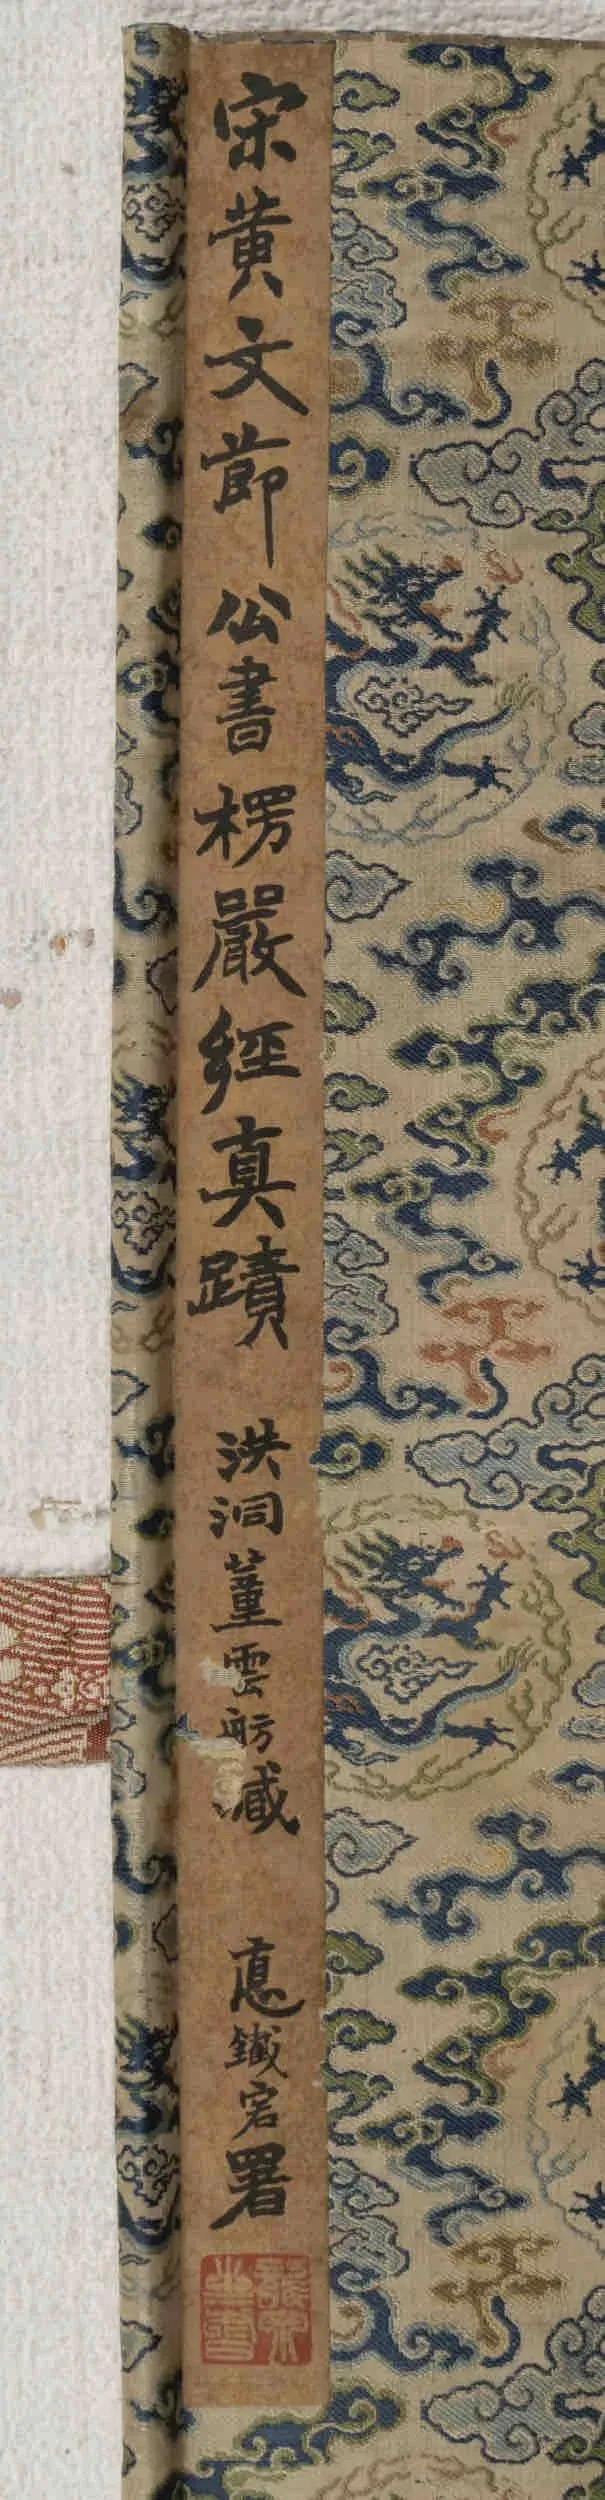 宋黄文莭公書楞嚴經真蹟 洪洞董雲舫臧 悳鐵宕署